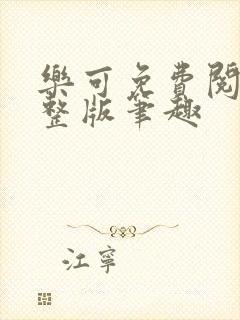 樂可免費閱
整版筆趣
江寧